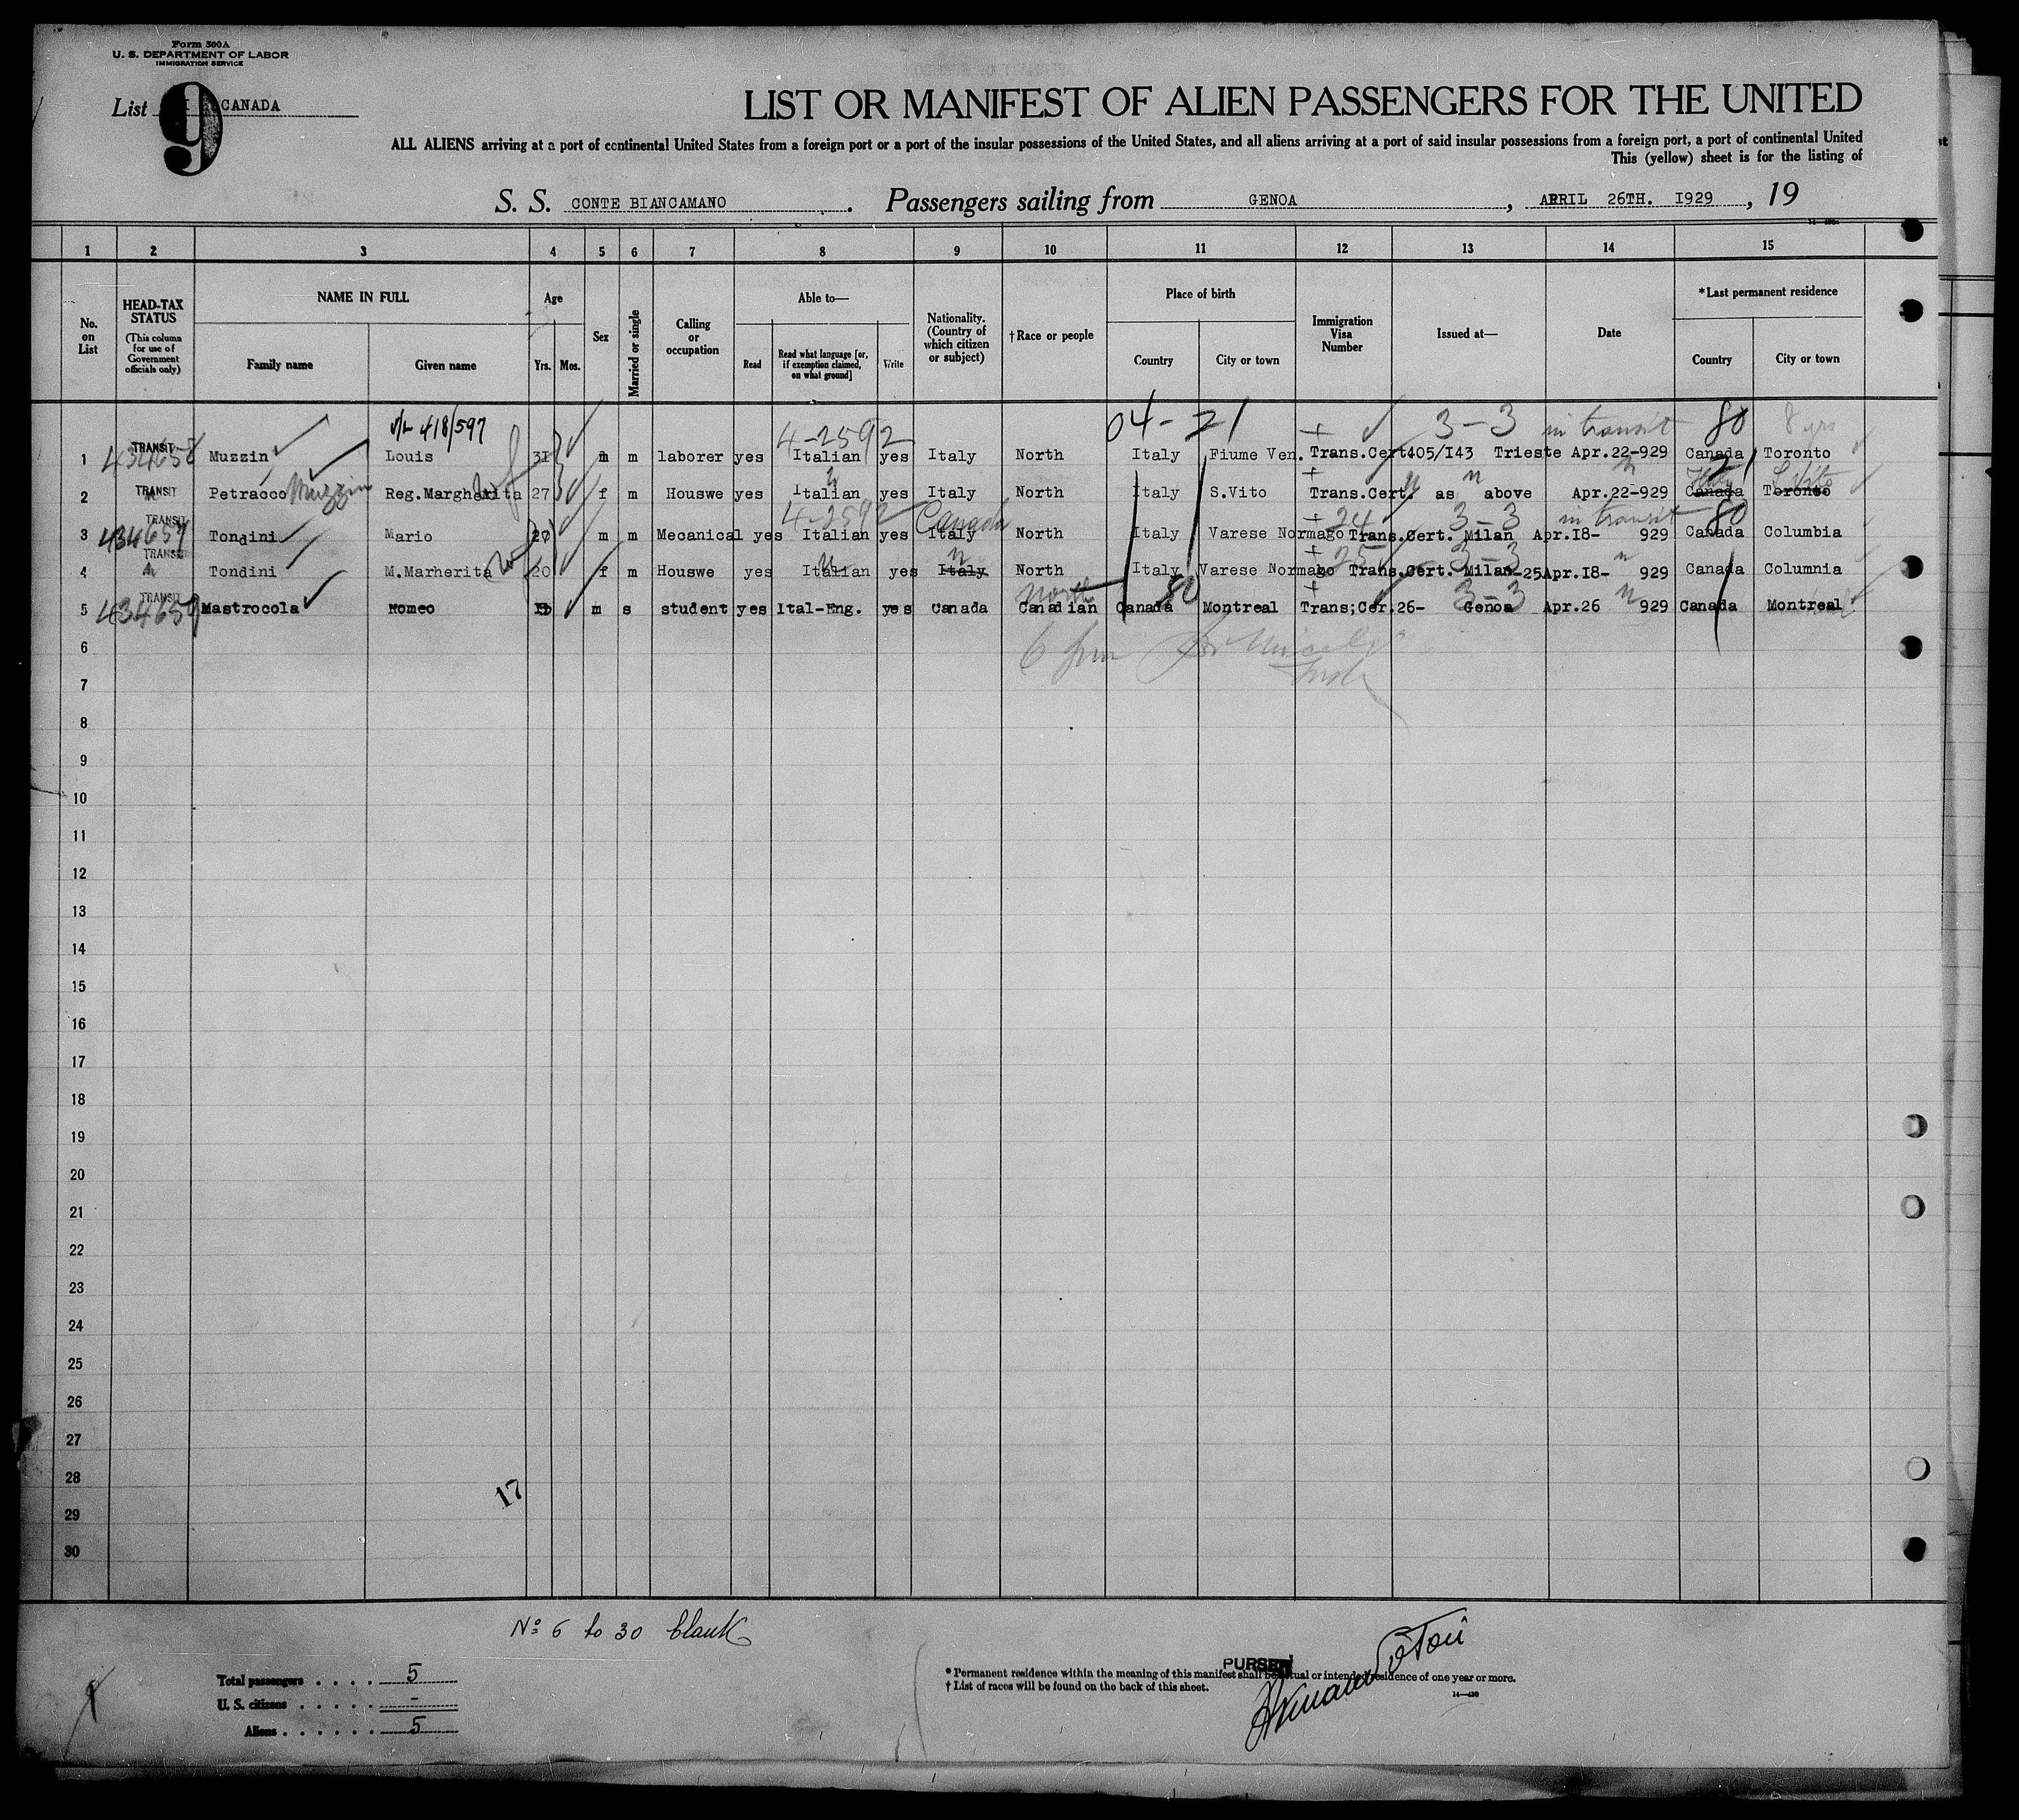 Form 500A
U. S. DEPARTMENT OF LABOR
IMMIGRATION SERVICE
List CANADA
9
LIST OR MANIFEST OF ALIEN PASSENGERS FOR THE UNITED
ALL ALIENS arriving at a port of continental United States from a foreign port or a port of the insular possessions of the United States, and all aliens arriving at a port of said insular possessions from a foreign port, a port of continental United
This (yellow) sheet is for the listing of
S. S. CONTE BIANCAMANO. Passengers sailing from GENOA, APRIL 26TH. 1929, 19
1 2 3 4 5 6 7 8 9 10 11 12 13 14 15
No. on List
HEAD-TAX STATUS (This column for use of Government officials only)
NAME IN FULL
Family name Given name
Age
Yrs. Mos.
Sex
Married or single
Calling or occupation
Able to—
Read Read what language [or, if exemption claimed, on what ground] Write
Nationality. (Country of which citizen or subject)
†Race or people
Place of birth
Country City or town
Immigration Visa Number
Issued at—
Date
*Last permanent residence
Country City or town
418/597 4-2592 04-21 3-3 in transit 80 8 yrs
1 434658 TRANSIT Muzzin Louis 31 m m laborer yes Italian yes Italy North Italy Fiume Ven. Trans.Cert405/I43 Trieste Apr.22-929 Canada Toronto
2 TRANSIT Petracco Muzzin Reg.Margherita 27 f m Houswe yes Italian yes Italy North Italy S.Vito Trans.Cert. as above Apr.22-929 Canada Toronto Italy S.Vito 21
4-2592 Canada 24 3-3 in transit 80
3 434657 TRANSIT Tondini Mario m m Mecanical yes Italian yes Italy North Italy Varese Normago Trans.Cert. Milan Apr.I8- 929 Canada Columbia
4 TRANSIT Tondini M.Marherita 20 f m Houswe yes Italian yes Italy North Italy Varese Normago Trans.Cert. Milan-25 Apr.I8- 929 Canada Columnia
25 3-3
5 434659 TRANSIT Mastrocola Romeo m s student yes Ital-Eng. yes Canada Canadian Canada Montreal Trans;Cer.26- Genoa Apr.26 929 Canada Montreal
North 80 3-3
6
7
8
9
10
11
12
13
14
15
16
17
18
19
20
21
22
23
24
25
26
27
28
17
29
30
No 6 to 30 blank
Total passengers . . . . 5
U. S. citizens . . . . . -
Aliens . . . . . . 5
PURSER
* Permanent residence within the meaning of this manifest shall be actual or intended residence of one year or more.
† List of races will be found on the back of this sheet.